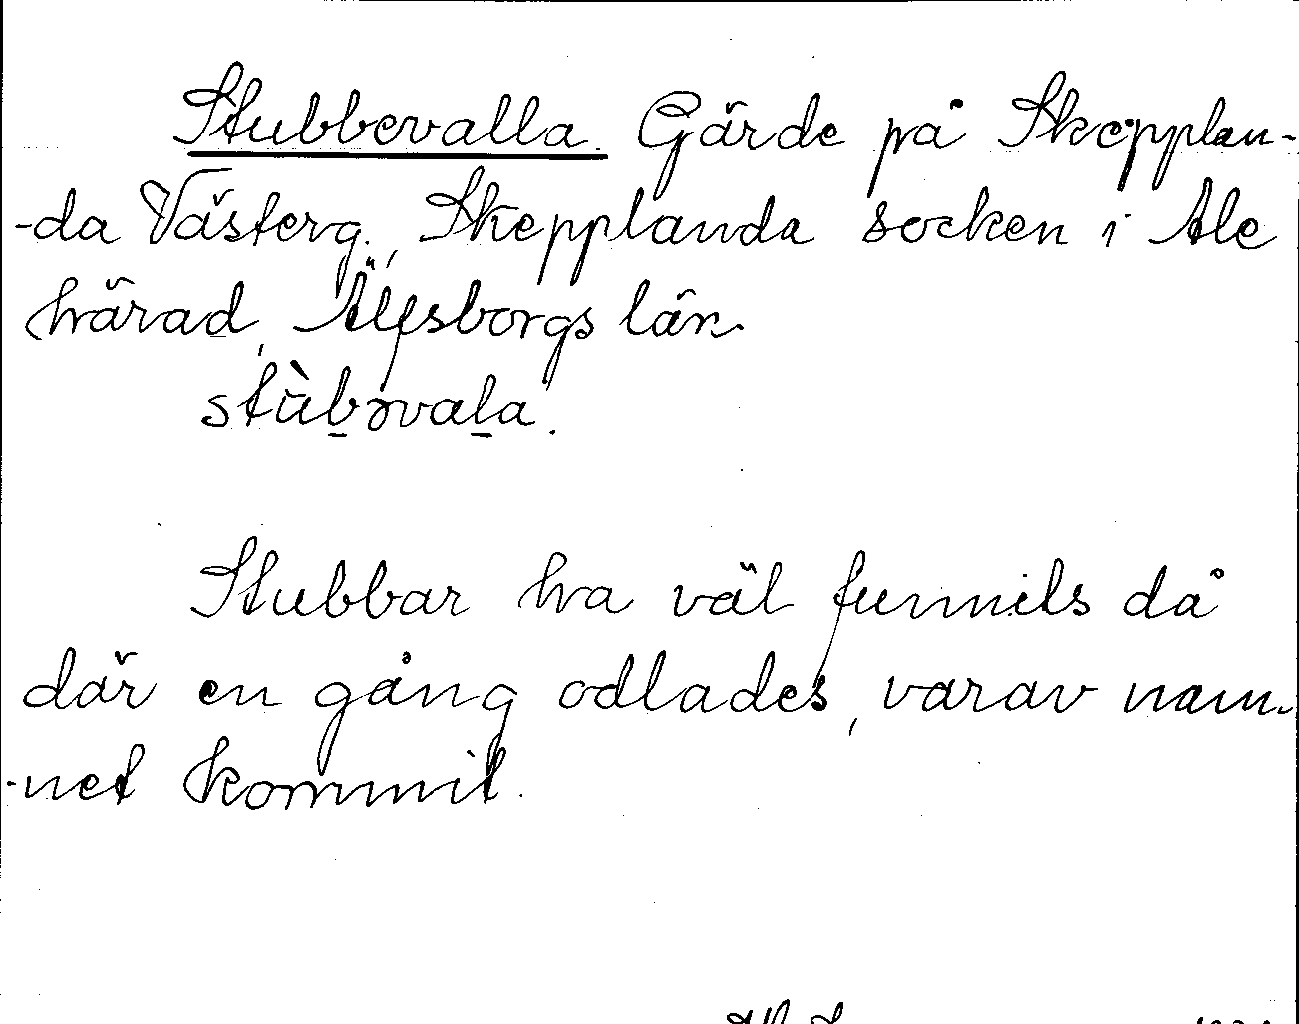 Stubbevalla. Gärde på Skepplan-
-da Västerg., Skepplanda socken i Ale
härad, Älfsborgs län.
stùbəvala.
Stubbar ha väl funnits då
där en gång odlades, varav nam-
-net kommit.